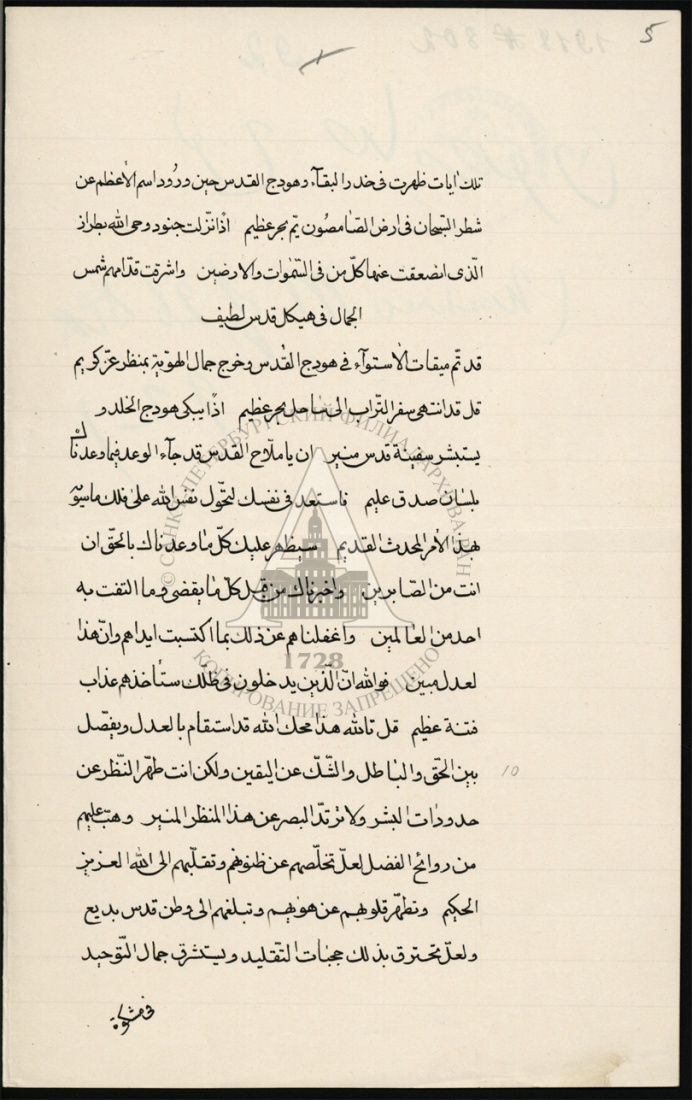 5
تلك ايات ظهرت فى خدر البقآء وهودج القدس حين ورود اسم الأعظم عن
شطر السّبحان فى ارض الصّامصون يمّ بحر عظيم اذا نزّلت جنود وحى الله بطراز
الّذى انصعقت عنها كلّ من فى السّمٰوات والارضين واشرقت قدّامهم شمس
الجمال فى هيكل قدس لطيف
قد تمّ ميقات الأستوآء فى هودج القُدس وخرج جمال الهويّة بمنظر عزّ كريم
قل قد انتهى سفر التّراب الى ساحل بحر عظيم اذًا يبكى هودج الخلد و
يستبشر سفينة قدس منير ان يا ملّاح القدس قد جآء الوعد فيما وعدناك
بلسان صدق عليم فاستعد فى نفسك لتحوّل نفس الله على فلك
بهذا الأمر المحدث القديم سيظهر عليك كلّ ما وعدناك بالحقّ ان
انت من الصّابرين واخبرناك من قبل كلّ ما يقضى وما التفت به
احد من العالمين واغفلناهم عن ذلك بما اكتسبت ايداهم وانّ هذا
لعدل مبين فوالله انّ الّذين يدخلون فى ظلّك ستأخذهم عذاب
فتنة عظيم قل تالله هذا محك الله قد استقام بالعدل ويفصّل
بين الحقّ والباطل والشّكّ عن اليقين ولكن انت طهّر النّظر عن
10
حدودات البشر ولا ترتدّ البصر عن هذا المنظر المنير وهبّ عليهم
من روائح الفضل لعلّ تخلّصهم عن ظنونهم وتقلّبهم الى الله العزيز
الحكيم وتطهّر قلوبهم عن هوٰيهم وتبلغهم الى وطن قدس بديع
ولعلّ تحترق بذلك حجبات التّقليد ويستشرق جمال التّوحيد
فى مشكٰوة
© САНКТ-ПЕТЕРБУРГСКИЙ ФИЛИАЛ АРХИВА РАН
1728
КОПИРОВАНИЕ ЗАПРЕЩЕНО